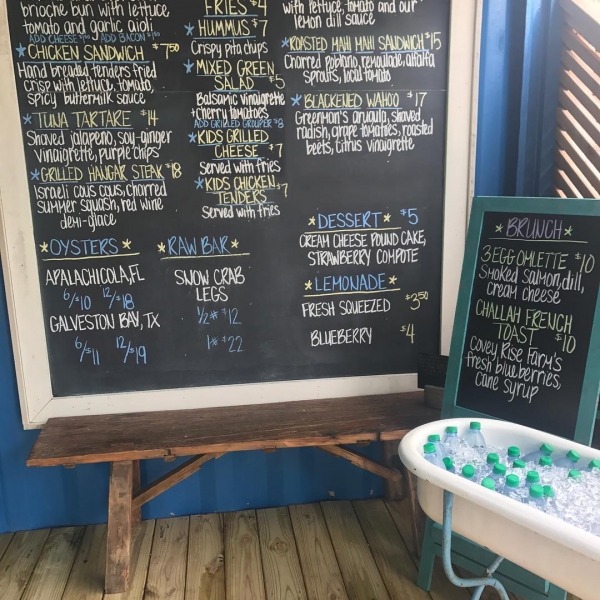 brioche bun with lettuce
tomato and garlic aioli
ADD CHEESE ADD BACON
CHICKEN SANDWICH $7.50
Hand breaded tenders fried
crisp with lettuce, tomato,
spicy buttermilk sauce
TUNA TARTARE $14
Shaved jalapeño, soy-ginger
vinaigrette, purple chips
GRILLED HANGAR STEAK $18
Israeli cous cous, charred
summer squash, red wine
demi-glace
FRIES $4
HUMMUS $7
Crispy pita chips
MIXED GREEN
SALAD $5
Balsamic vinaigrette
+ cherry tomatoes
ADD GRILLED GROUPER $8
KIDS GRILLED
CHEESE $7
Served with fries
KIDS CHICKEN
TENDERS $7
Served with fries
with lettuce, tomato and our
lemon dill sauce
ROASTED MAHI MAHI SANDWICH $15
Charred poblano, remoulade, alfalfa
sprouts, local tomato
BLACKENED WAHOO $17
Greenmon's arugula, shaved
radish, grape tomatoes, roasted
beets, citrus vinaigrette
OYSTERS
APALACHICOLA, FL
6/$10 12/$18
GALVESTON BAY, TX
6/$11 12/$19
RAW BAR
SNOW CRAB
LEGS
1/2# $12
1# $22
DESSERT $5
CREAM CHEESE POUND CAKE,
STRAWBERRY COMPOTE
LEMONADE
FRESH SQUEEZED $3.50
BLUEBERRY $4
BRUNCH
3 EGG OMLETTE $10
Smoked salmon, dill,
cream cheese
CHALLAH FRENCH
TOAST $10
Covey Rise Farm's
fresh blueberries,
cane syrup